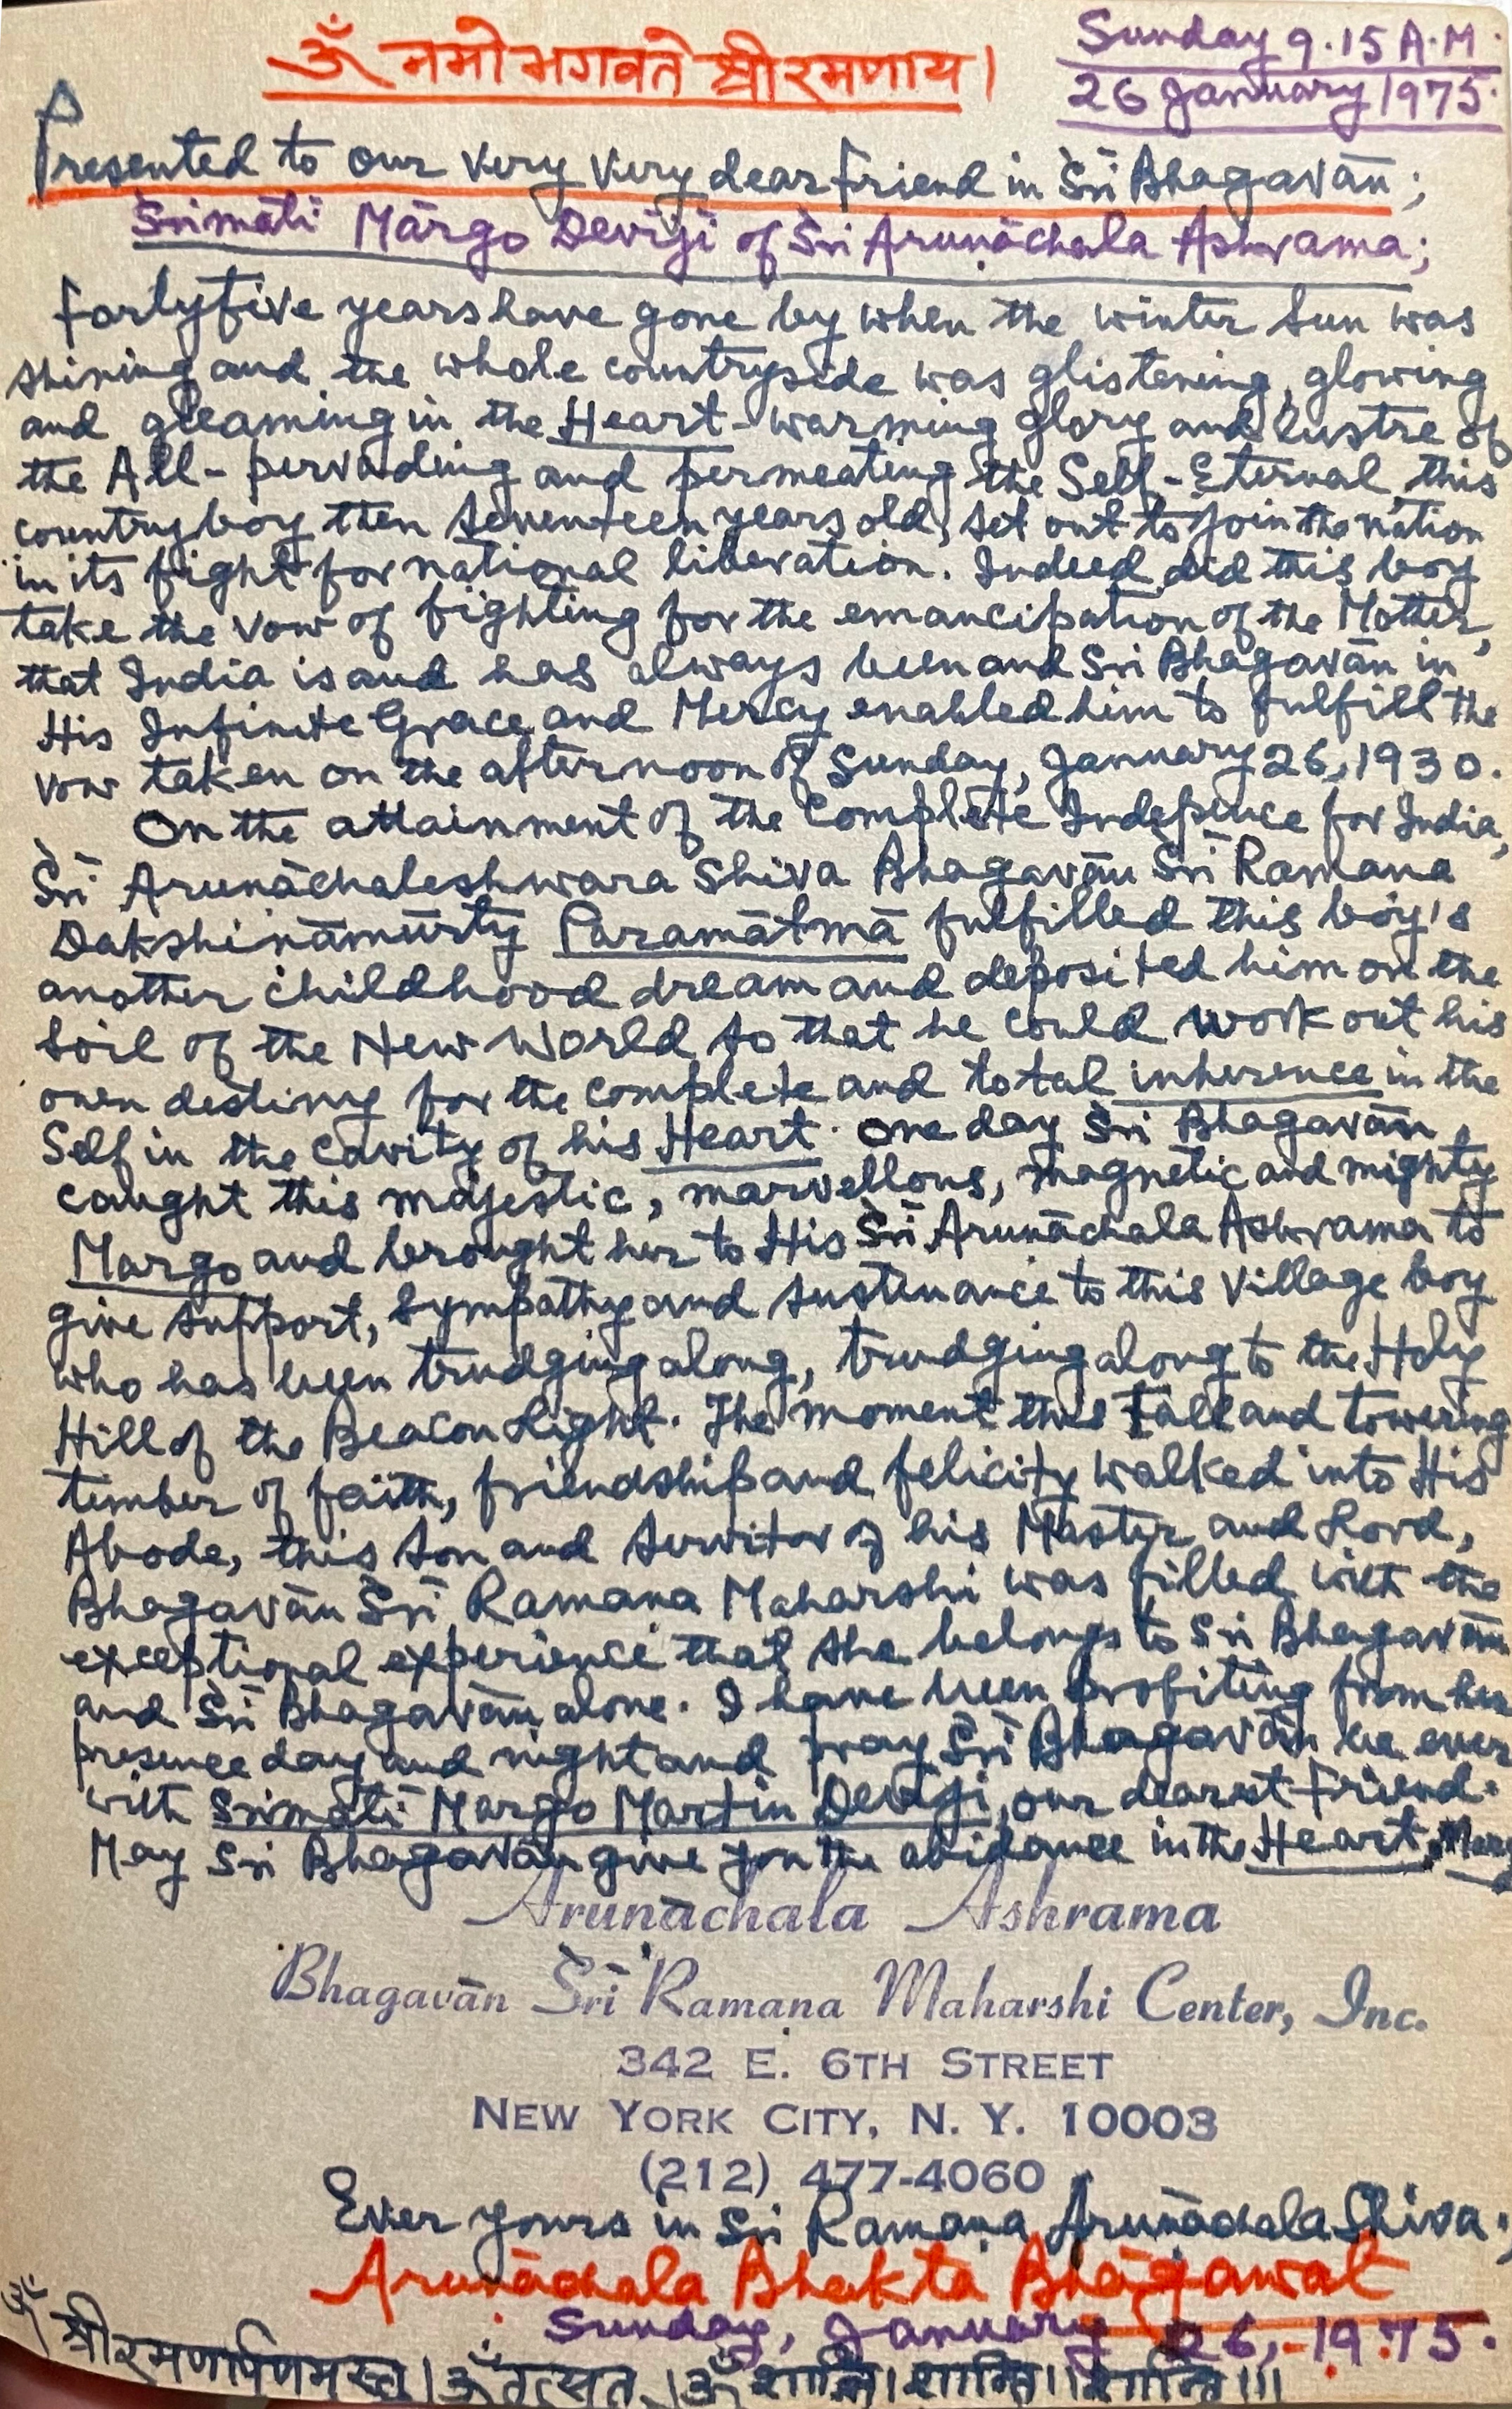 ॐ नमो भगवते श्रीरमणाय।
Sunday 9.15 A.M.
26 January 1975.
Presented to our very very dear friend in Sri Bhagavān;
Srimāti Mārgo Devījī of Sri Arunāchala Ashrama;
Fortyfive years have gone by when the winter Sun was
shining and the whole countryside was glistening, glowing
and gleaming in the Heart-warming glory and lustre of
the All-pervading and permeating the Self-Eternal, this
country boy then seventeen years old, set out to join the nation
in its fight for national liberation. Indeed did this boy
take the vow of fighting for the emancipation of the Mother,
that India is and has always been and Sri Bhagavān in
His Infinite Grace and Mercy enabled him to fulfill the
vow taken on the afternoon of Sunday, January 26, 1930.
On the attainment of the Complete Indepence for India,
Sri Arunāchaleshwara Shiva Bhagavān Sri Ramana
Dakshināmūrty Paramātmā fulfilled this boy's
another childhood dream and deposited him on the
soil of the New World so that he could work out his
own destiny for the complete and total inherence in the
Self in the cavity of his Heart. One day Sri Bhagavān
caught this majestic, marvellous, magnetic and mighty
Margo and brought her to His Sri Arunāchala Ashrama to
give support, sympathy and sustenance to this village boy
who has been trudging along, trudging along to the Holy
Hill of the Beacon Light. The moment this tall and towering
timber of faith, friendship and felicity walked into His
Abode, this son and servitor of his Master and Lord,
Bhagavān Sri Ramana Maharshi was filled with the
exceptional experience that she belongs to Sri Bhagavān
and Sri Bhagavān alone. I have been profiting from her
presence day and night and pray Sri Bhagavān be ever
with Srimāti Margo Martin Devījī, our dearest friend.
May Sri Bhagavān give you the abidance in the Heart,
Arunāchala Ashrama
Bhagavān Śrī Ramana Maharshi Center, Inc.
342 E. 6TH STREET
NEW YORK CITY, N. Y. 10003
(212) 477-4060
Ever yours in Sri Ramana Arunāchala Shiva,
Arunāchala Bhakta Bhāgawat
Sunday, January 26, 1975.
ॐ श्रीरमणार्पणमस्तु। ॐ तत्सत्। ॐ शान्तिः। शान्तिः।। शान्तिः।।।